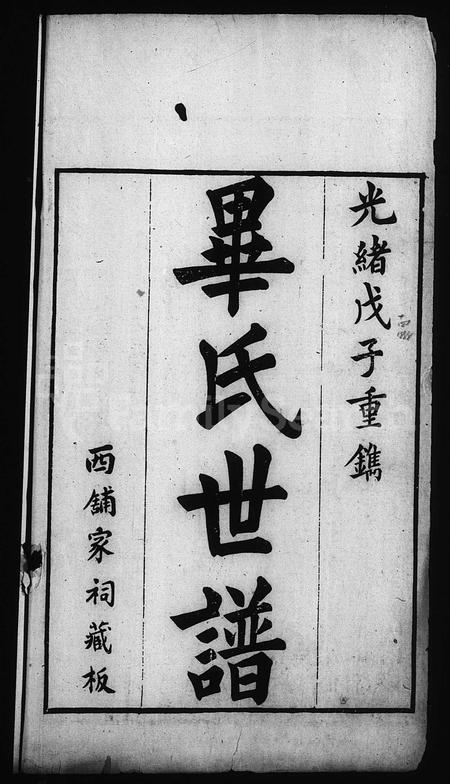 光緒戊子重鐫
畢氏世譜
西舖家祠藏板
FamilySearch